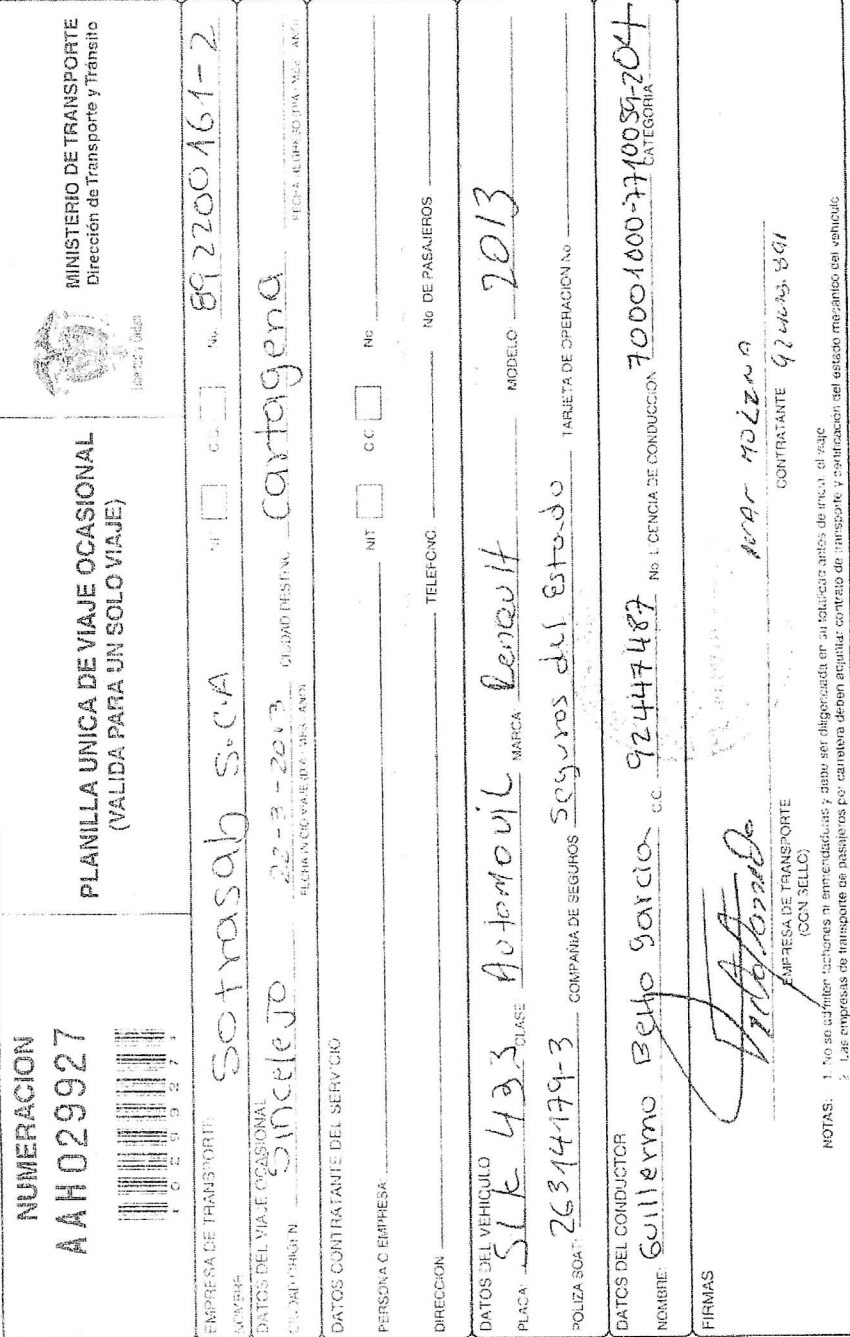 NUMERACION
AAH029927
PLANILLA UNICA DE VIAJE OCASIONAL
(VALIDA PARA UN SOLO VIAJE)
MINISTERIO DE TRANSPORTE
Dirección de Transporte y Tránsito
EMPRESA DE TRANSPORTE
NOMBRE Sotrasab S.C.A No 892200161-2
DATOS DEL VIAJE OCASIONAL
CIUDAD ORIGEN Sincelejo 22-3-2013 CIUDAD DESTINO Cartagena
FECHA INICIO VIAJE (DIA - MES - AÑO) FECHA REGRESO (DIA - MES - AÑO)
DATOS CONTRATANTE DEL SERVICIO
PERSONA O EMPRESA NIT C.C. No
DIRECCION TELEFONO No DE PASAJEROS
DATOS DEL VEHICULO
PLACA: SLK 433 CLASE Automovil MARCA Renault MODELO 2013
POLIZA SOAT: 26314179-3 COMPAÑIA DE SEGUROS Seguros del Estado TARJETA DE OPERACION No
DATOS DEL CONDUCTOR
NOMBRE: Guillermo Bello Garcia C.C. 92447487 No LICENCIA DE CONDUCCION 70001000-7710039-204
CATEGORIA
FIRMAS
MOLINA
EMPRESA DE TRANSPORTE
(CON SELLO)
CONTRATANTE
NOTAS: 1. No se admiten tachones ni enmendaduras y debe ser diligenciada en su totalidad antes de iniciar el viaje
2. Las empresas de transporte de pasajeros por carretera deben adjuntar contrato de transporte y certificación del estado mecánico del vehiculo